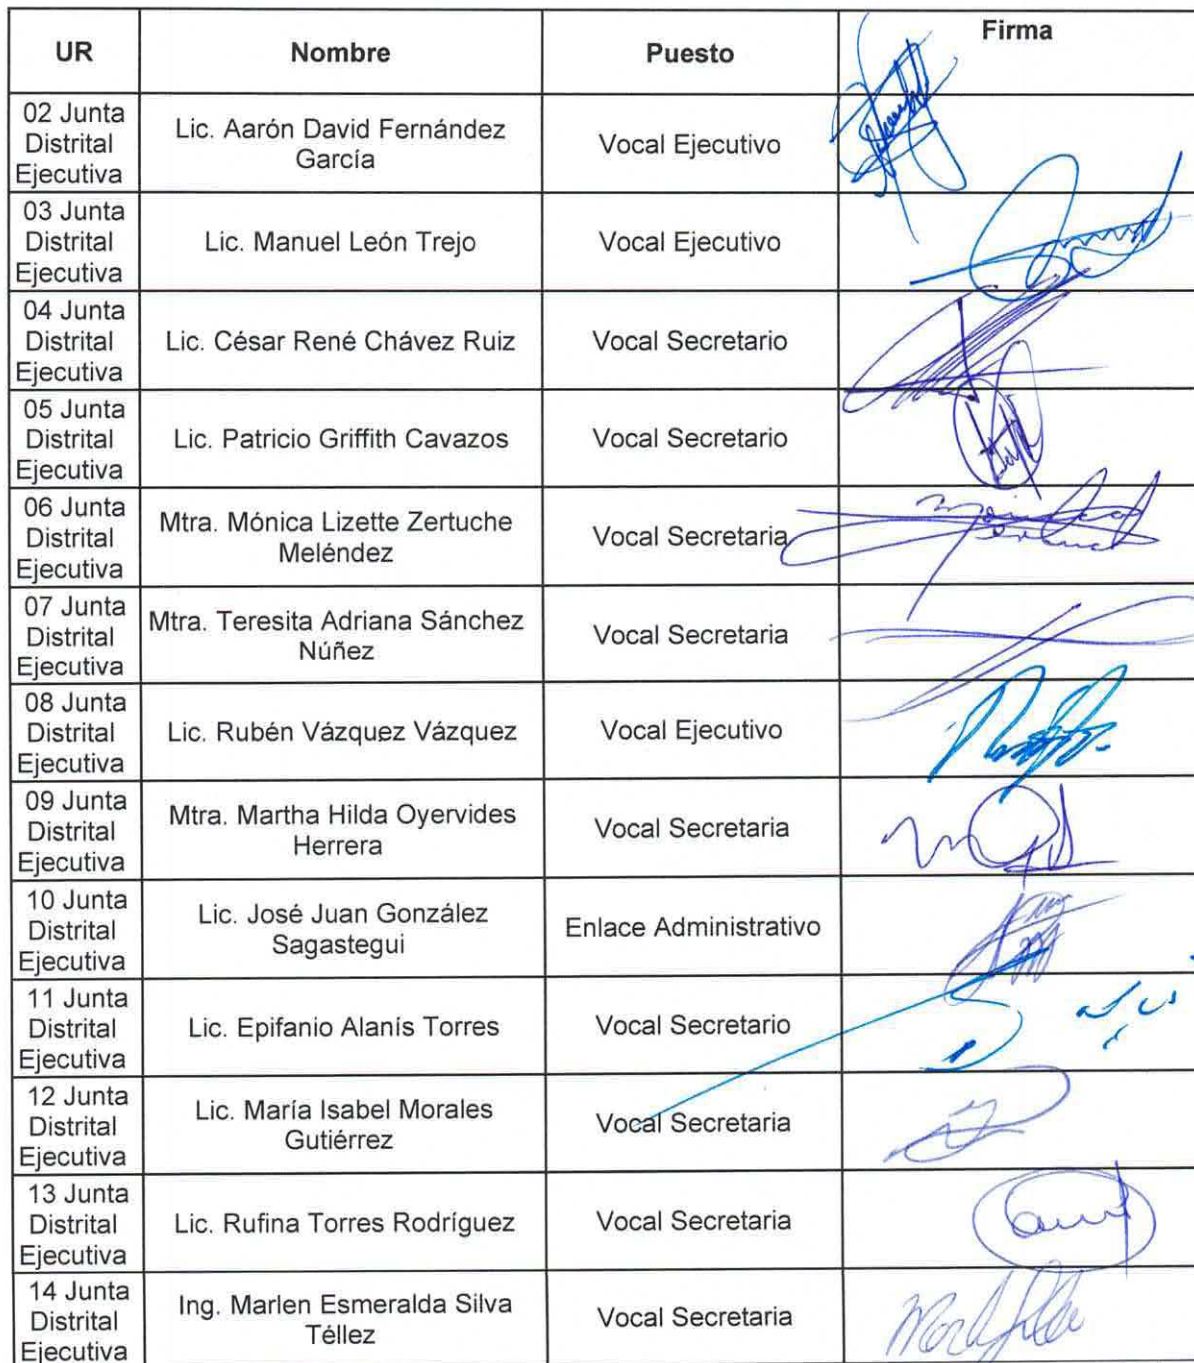 UR Nombre Puesto Firma
02 Junta
Distrital
Ejecutiva
Lic. Aarón David Fernández
García
Vocal Ejecutivo
03 Junta
Distrital
Ejecutiva
Lic. Manuel León Trejo
Vocal Ejecutivo
04 Junta
Distrital
Ejecutiva
Lic. César René Chávez Ruiz
Vocal Secretario
05 Junta
Distrital
Ejecutiva
Lic. Patricio Griffith Cavazos
Vocal Secretario
06 Junta
Distrital
Ejecutiva
Mtra. Mónica Lizette Zertuche
Meléndez
Vocal Secretaria
07 Junta
Distrital
Ejecutiva
Mtra. Teresita Adriana Sánchez
Núñez
Vocal Secretaria
08 Junta
Distrital
Ejecutiva
Lic. Rubén Vázquez Vázquez
Vocal Ejecutivo
09 Junta
Distrital
Ejecutiva
Mtra. Martha Hilda Oyervides
Herrera
Vocal Secretaria
10 Junta
Distrital
Ejecutiva
Lic. José Juan González
Sagastegui
Enlace Administrativo
11 Junta
Distrital
Ejecutiva
Lic. Epifanio Alanís Torres
Vocal Secretario
12 Junta
Distrital
Ejecutiva
Lic. María Isabel Morales
Gutiérrez
Vocal Secretaria
13 Junta
Distrital
Ejecutiva
Lic. Rufina Torres Rodríguez
Vocal Secretaria
14 Junta
Distrital
Ejecutiva
Ing. Marlen Esmeralda Silva
Téllez
Vocal Secretaria